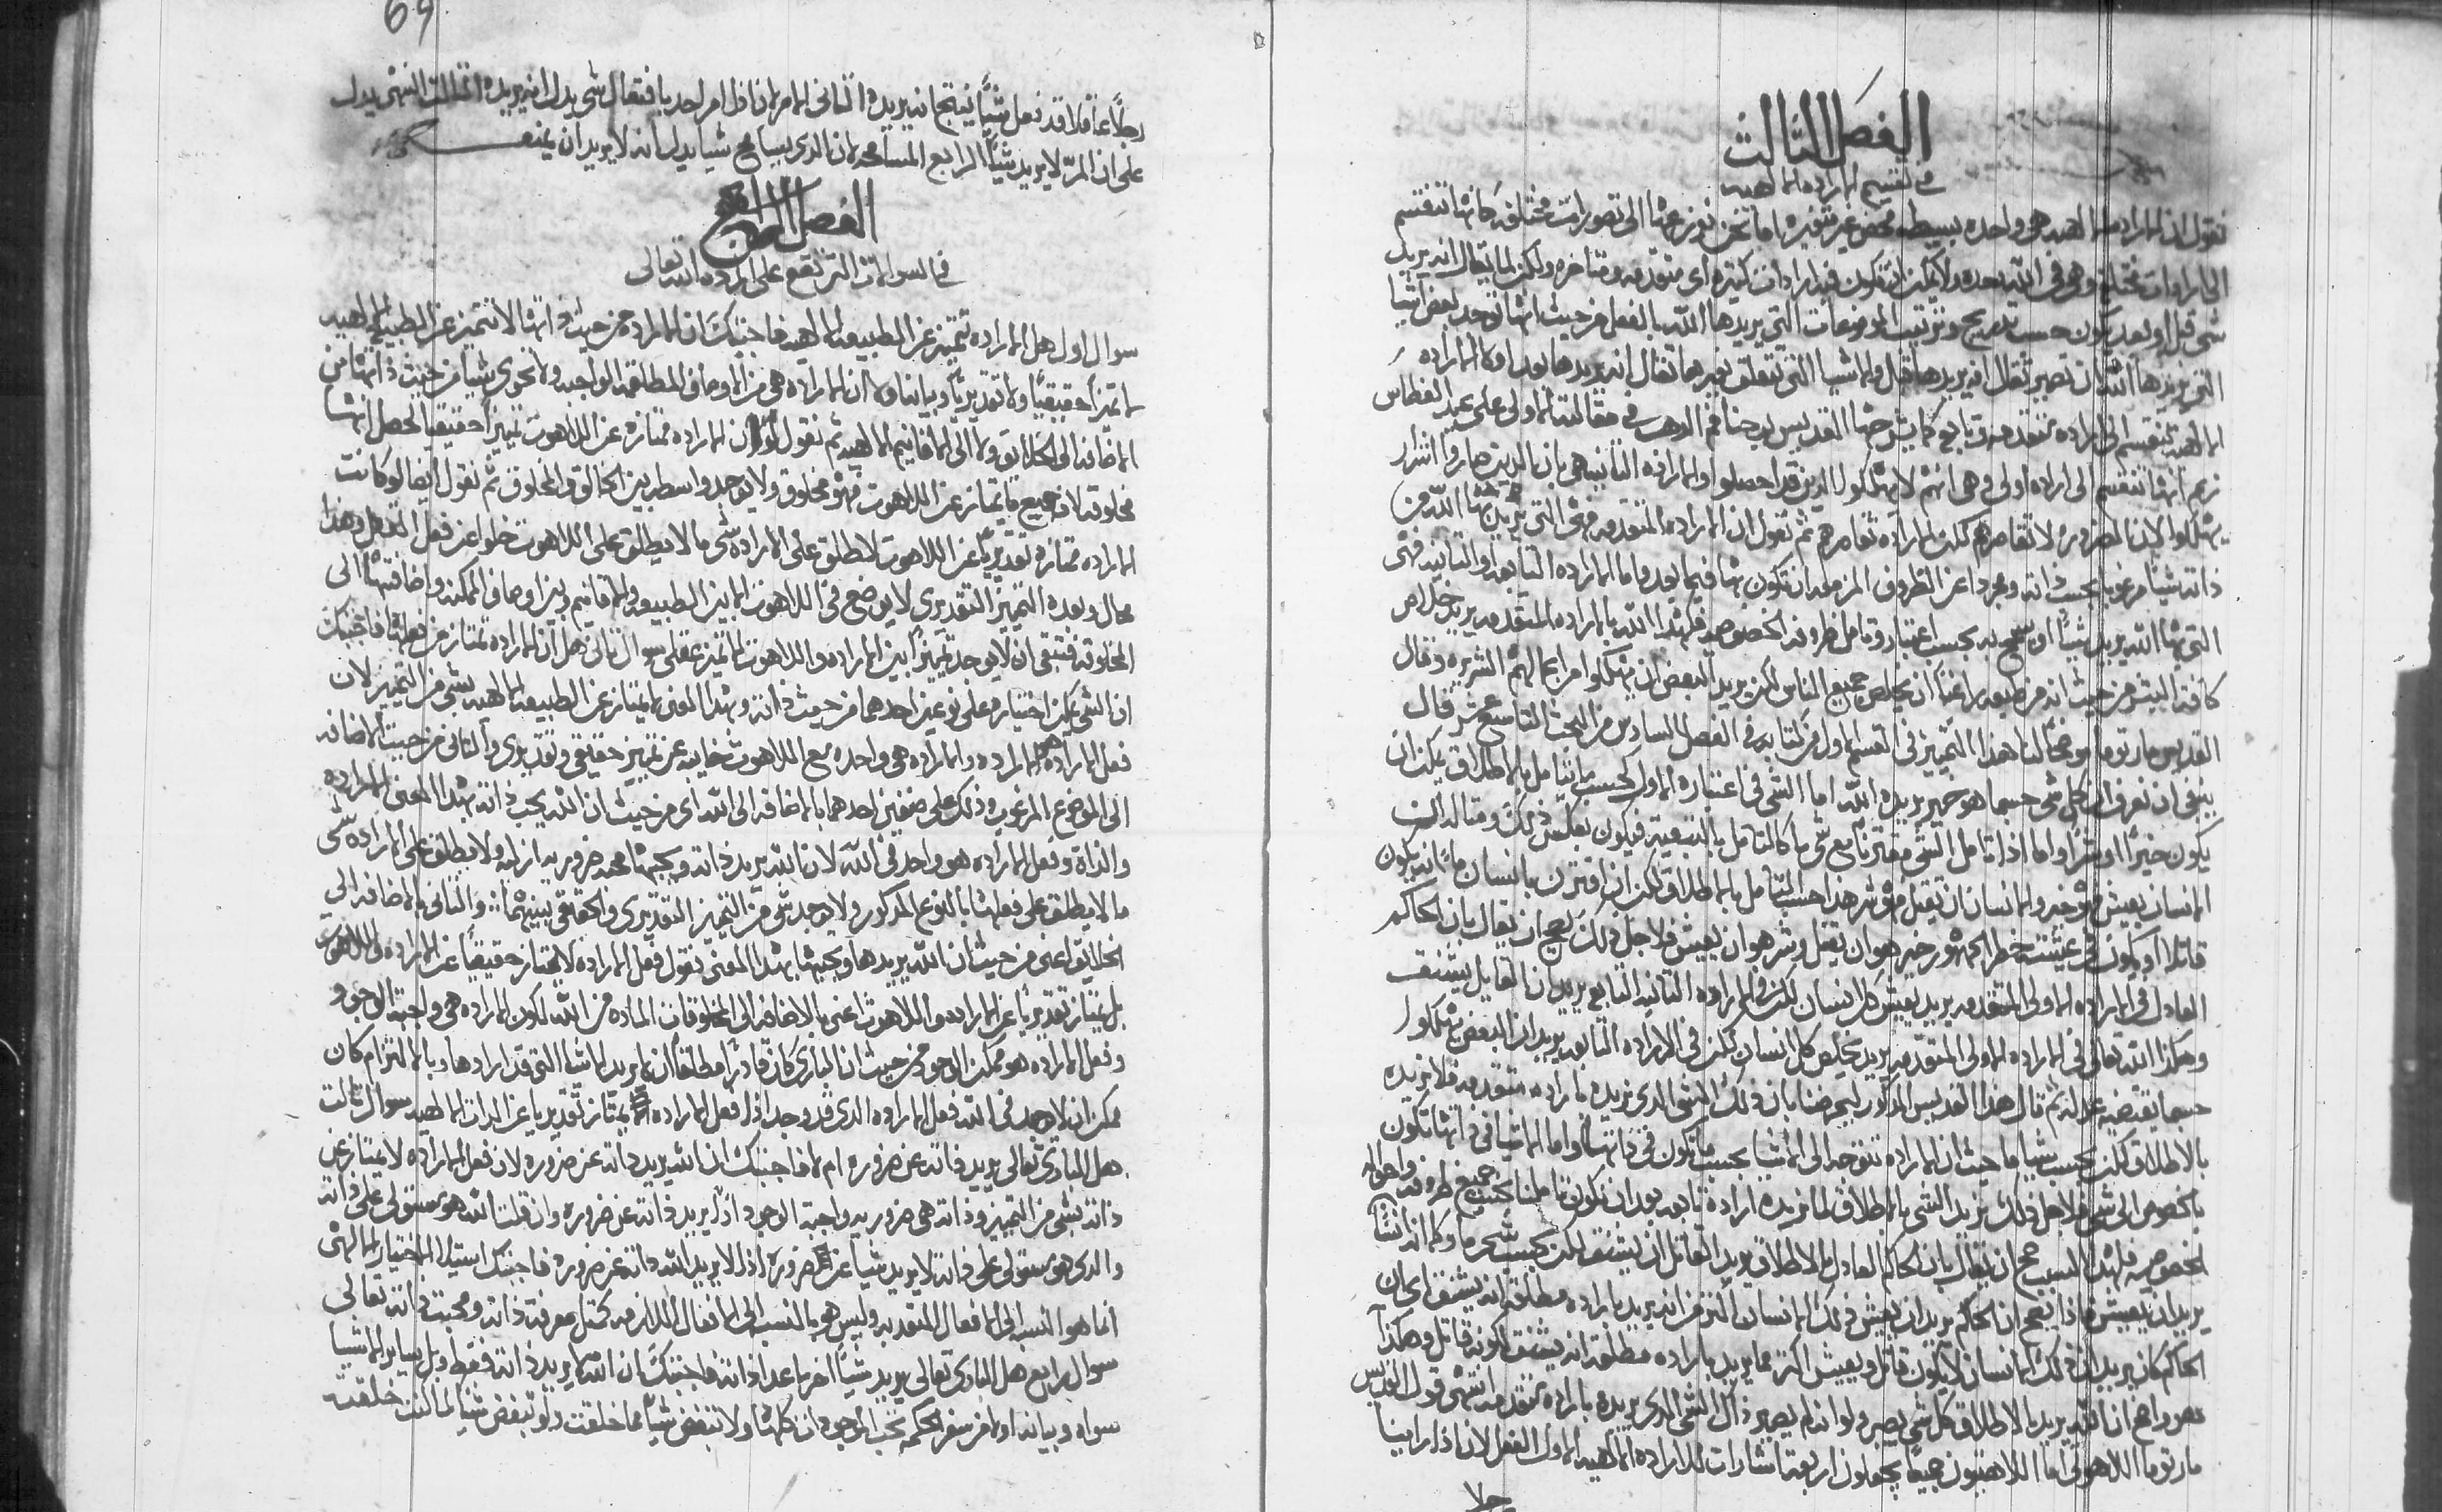 الفصل الثالث
في تقسيم الاراده الالهيه
نقول ان الاراده الالهيه هي واحده بسيطه محض غير متغيره اما نحن نفرزها الى تصورات مختلفه كانها تنقسم
الى ارادات مختلفه وهي في الله وحده ولا يمكن ان تكون فيه ارادات كثيره اي متقدمه ومتاخره ولكن لما يقال انه يريد
شي قبل او بعد يكون حسب تدريج وترتيب الموضوعات التي يريدها الله بالفعل من حيث انها توجد بعض اشيا
التي يريدها الله ان تصير تقال انه يريدها قبل والاشيا التي تتعلق بغيرها تقال انه يريدها بعد اولا الاراده
الالهيه تنقسم الى اراده متقدمه وتابعه كما يشرحها القديس يوحنا فم الدهب في مقالته الاولى على عيد الغطاس
زعم انها تنقسم الى اراده اولى وهي انهم لا يهلكوا الذين قد احصلوا والاراده الثانيه هي بان الذين صاروا اشرار
يهلكوا لان الضروره لا تقامرهم لكن الاراده تقامرهم ثم نقول ان الاراده المتقدمه فهي التي يريد بها الله من
ذاته شيئا مرغوبا بحسب ذاته ومجردا عن الظروف المزمعه ان تكون بها فيما بعد واما الاراده التابعه او الثانيه فهي
التي بها الله يريد شيئا او يسمح به بحسب اعتبار وتامل ظروفه الخصوصيه فلهذا الله بالاراده المتقدمه يريد خلاص
كافة البشر من حيث انه من طبعه راغبا ان يخلص جميع الناس لكن يريد البعض ان يهلكوا من اعمالهم الشريره وقال
القديس مار توما موضحا لنا هذا التمييز في القسم الاول من كتابه في الفصل السادس من البحث التاسع عشر قال
ينبغي ان نعرف ان كل شي حسبما هو خير يريده الله اما الشي في اعتباره الاول بحسب ما يتامل بالاطلاق يمكن ان
يكون خيرا او شرا واما اذا تامل الشي مقترنا مع شي ما كالتامل بالتبعيه فيكون بعكس ذلك ومثاله ان
الانسان يعيش فهو خير والانسان ان يقتل فهو شر هذا حسب التامل بالاطلاق لكن ان اقترن بانسان ما انه يكون
قاتلا او يكون في عيشته خطر الجمهور خير هو ان يقتل وشر هو ان يعيش فلاجل ذلك يصح ان يقال بان الحاكم
العادل في الاراده الاولى المتقدمه يريد يعيش كل انسان لكن في الاراده الثانيه التابعه يريد ان القاتل يشنق
وهكذا الله تعالى في الاراده الاولى المتقدمه يريد تخليص كل انسان لكن في الاراده التابعه يريد ان البعض يهلكوا
حسبما تقتضيه عدالته ثم قال هذا القديس المذكور ليحرضنا بان ذلك الشي الذي نريده باراده متقدمه فلا نريده
بالاطلاق لكن بحسب شيا ما حيث ان الاراده تتوجه الى الاشيا بحسب ما تكون في ذاتها واما الاشيا في ذاتها تكون
بالخصوص الى شي فلاجل ذلك نريد الشي بالاطلاق لما نريده اراده تابعه بعد ان نكون تاملنا بحسب جميع ظروفه واحواله
الخصوصيه فلهذا السبب صح ان يقال بان الحاكم العادل بالاطلاق يريد القاتل ان يشنق لكن بحسب شي ما وكما انه انسان
يريد ان يعيش فاذا يصح ان الحاكم يريد ان يعيش ذلك الانسان اكثر من انه يريد باراده مطلقه انه يشنق اي ان
الحاكم كان يريد ان ذلك الانسان لا يكون قاتل ويعيش اكثر مما يريد باراده مطلقه انه يشنق لكونه قاتل وهكذا
هو واضح ان الله يريد بالاطلاق كل شي يصير ولو انه لم يصير ذاك الشي الذي يريده باراده متقدمه انتهى قول القديس
مار توما اللاهوتي اما اللاهتيون جميعا يجعلون اربعة اشارات للاراده الالهيه الاول الفعل لان اذا راينا
رجلا
69
رجلا عاقلا قد فعل شيئا ينتج انه يريده الثاني الامر لان اذا امر احد بافتعال شي يدل انه يريده الثالث النهي يدل
على ان المرء لا يريد شيئا الرابع المسامحه لان الذي يسامح شيا يدل بانه لا يريد ان يمنعه
الفصل الرابع
في السوالات التي تقع على ارادة الله تعالى
سوال اول هل الاراده تتميز عن الطبيعه الالهيه فاجيبك ان الاراده من حيث ذاتها لا تتميز عن الطبيعه الالهيه
لا تميزا حقيقيا ولا تقديريا وبيانه اولا ان الاراده هي من الاوصاف المطلقه الواجبه ولا تحوي شيا من حيث ذاتها من
الاضافه الى الخلائق ولا الى الاقانيم الالهيه ثم نقول لو ان الاراده ممتازه عن اللاهوت تمييزا حقيقيا لحصل انها
مخلوقه لان جميع ما يمتاز عن اللاهوت فهو مخلوق ولا يوجد واسطه بين الخالق والمخلوق ثم نقول ايضا لو كانت
الاراده ممتازه تقديريا عن اللاهوت لانطلق على الاراده شي ما لا ينطلق على اللاهوت خلوا عن فعل العقل وهذا
محال وبعده التمييز التقديري لا يوضع في اللاهوت الا بين الطبيعه والاقانيم وبين اوصاف الممكنه واضافتها الى
المخلوقه فتبقى ان لا يوجد تمييزا بين الاراده واللاهوت الا تميز عقلي سوال ثاني هل ان الاراده تمتاز من فعلها فاجيبك
ان الشي يمكن اختياره على نوعين احدهما من حيث ذاته وبهذا المعنى لا يمتاز عن الطبيعه الالهيه بشي من التمييز لان
فعل الاراده هو الاراده والاراده هي واحده مع اللاهوت خاليه عن تمييز حقيقي وتقديري والثاني من حيث الاضافه
الى الموضوع المرغوب وذلك على صنفين احدهما بالاضافه الى الله اي من حيث ان الله يحب ذاته بهذا المعنى الاراده
والذاة وفعل الاراده هو واحد في الله لان الله يريد ذاته ويحبها محبه ضروريه ازليه ولا ينطلق على الاراده شي
ما لا ينطلق على فعلها بالنوع المذكور ولا يوجد شي من التمييز التقديري والحقيقي بينهما والثاني بالاضافه الى
الخلائق اعني من حيث ان الله يريدها ويحبها بهذا المعنى نقول فعل الاراده لا يمتاز حقيقيا عن الاراده واللاهوت
بل يمتاز تقديريا عن الاراده واللاهوت اعني بالاضافه الى المخلوقات الماده من الله لكون الاراده هي واجبة الوجود
وفعل الاراده هو ممكن الوجود من حيث ان الباري كان قادرا مطلقا ان لا يريد الاشيا التي قد ارادها وبالالتزام كان
ممكن ان لا يوجد في الله فعل الاراده الذي قد وجد اذا فعل الاراده يمتاز تقديريا عن الذات الالهيه سوال ثالث
هل الباري تعالى يريد ذاته عن ضروره ام لا فاجيبك ان الله يريد ذاته عن ضروره لان فعل الاراده لا يمتاز عن
ذاته بشي من التمييز وذاته هي ضروريه واجبة الوجود اذا يريد ذاته عن ضروره وان قلت الله هو مستولي على ذاته
والذي هو مستولي على ذاته لا يريد شيا عن ضروره اذا لا يريد الله ذاته عن ضروره فاجيبك استيلا الاختيار الالهي
انما هو بالنسبه الى الافعال المتعديه وليس هو بالنسبه الى الافعال اللازمه كمثل معرفة ذاته ومحبة ذاته تعالى
سوال رابع هل الباري تعالى يريد شيئا اخر ما عدا ذاته فاجيبك ان الله لا يريد ذاته فقط بل يريد ساير الاشيا
سواه وبيانه اولا من سفر الحكمه تحب الموجودات كلها ولا تبغض شيا مما خلقت ولو تبغض شيا لما كنت خلقته